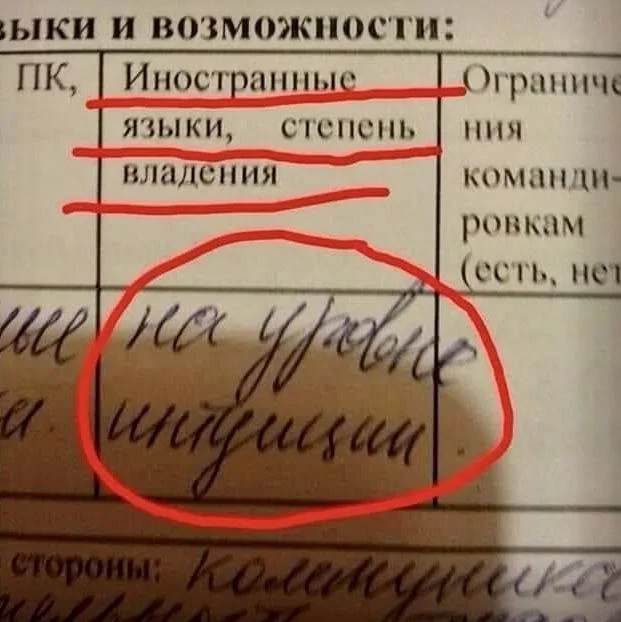 зыки и возможности:
ПК, Иностранные Ограниче
языки, степень ния
владения команди-
ровкам
(есть, нет
ные на уровне
интуиции.
стороны: коммуника